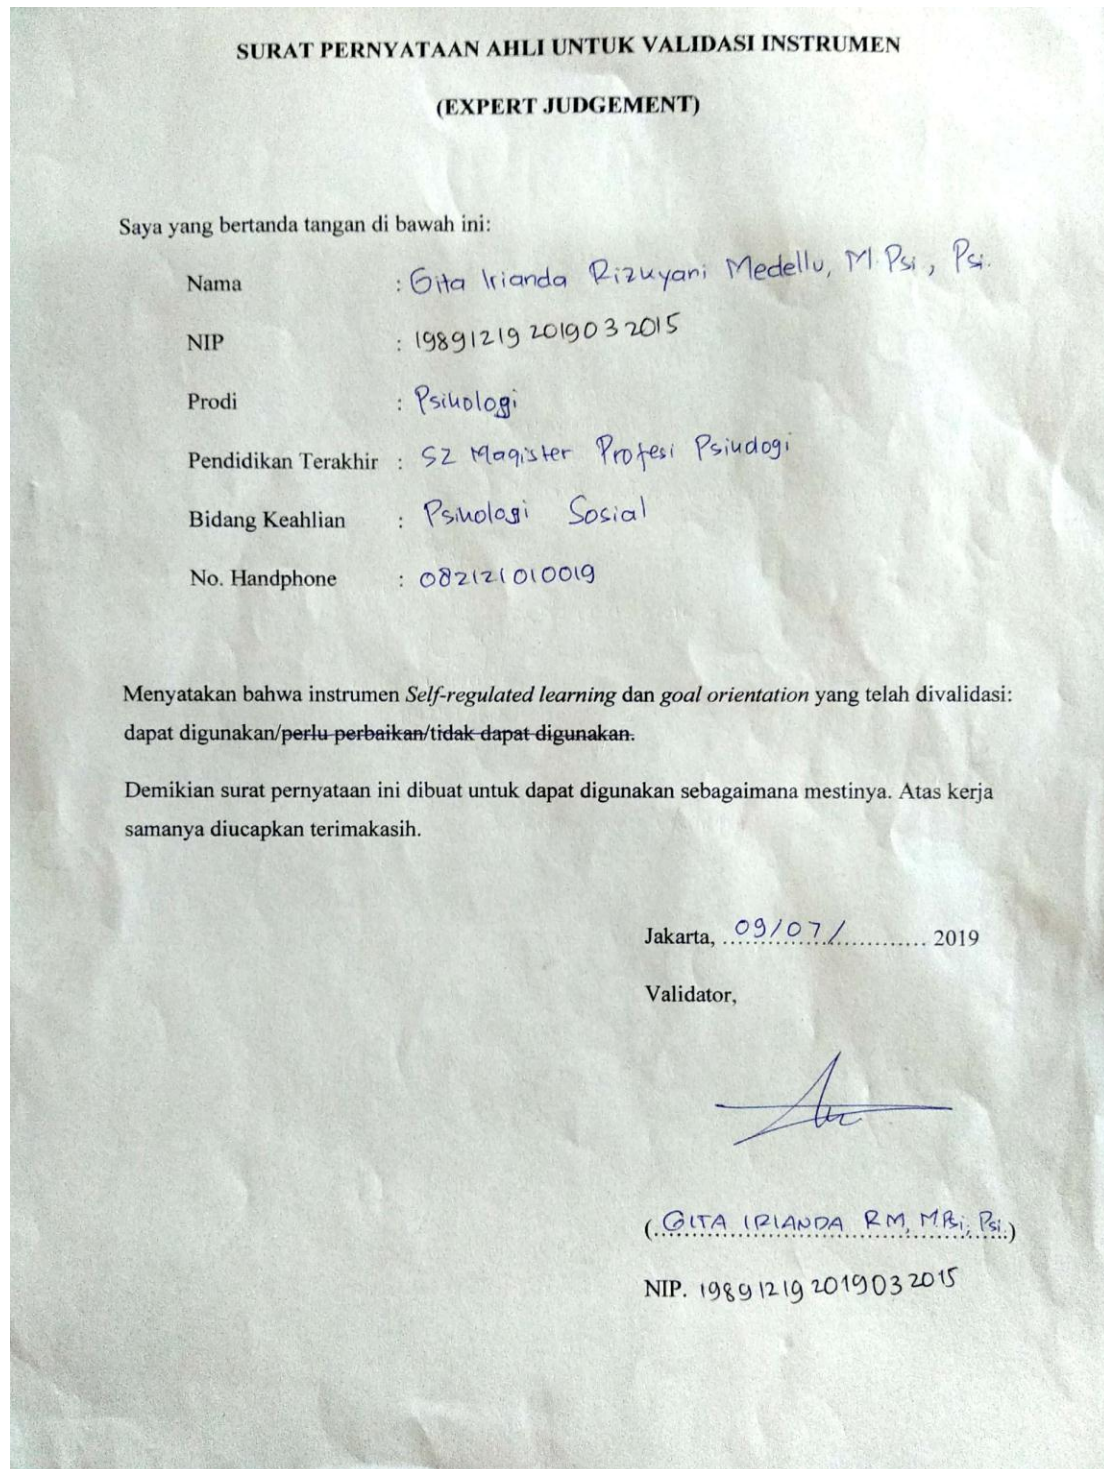 SURAT PERNYATAAN AHLI UNTUK VALIDASI INSTRUMEN
(EXPERT JUDGEMENT)
Saya yang bertanda tangan di bawah ini:
Nama : Gita Irianda Rizkyani Medellu, M.Psi, Psi.
NIP : 19891219 201903 2015
Prodi : Psikologi
Pendidikan Terakhir : S2 Magister Profesi Psikologi
Bidang Keahlian : Psikologi Sosial
No. Handphone : 082121010019
Menyatakan bahwa instrumen Self-regulated learning dan goal orientation yang telah divalidasi:
dapat digunakan/perlu perbaikan/tidak dapat digunakan.
Demikian surat pernyataan ini dibuat untuk dapat digunakan sebagaimana mestinya. Atas kerja
samanya diucapkan terimakasih.
Jakarta, 09/07/ 2019
Validator,
(GITA IRIANDA RM, M.Psi, Psi.)
NIP. 19891219 201903 2015